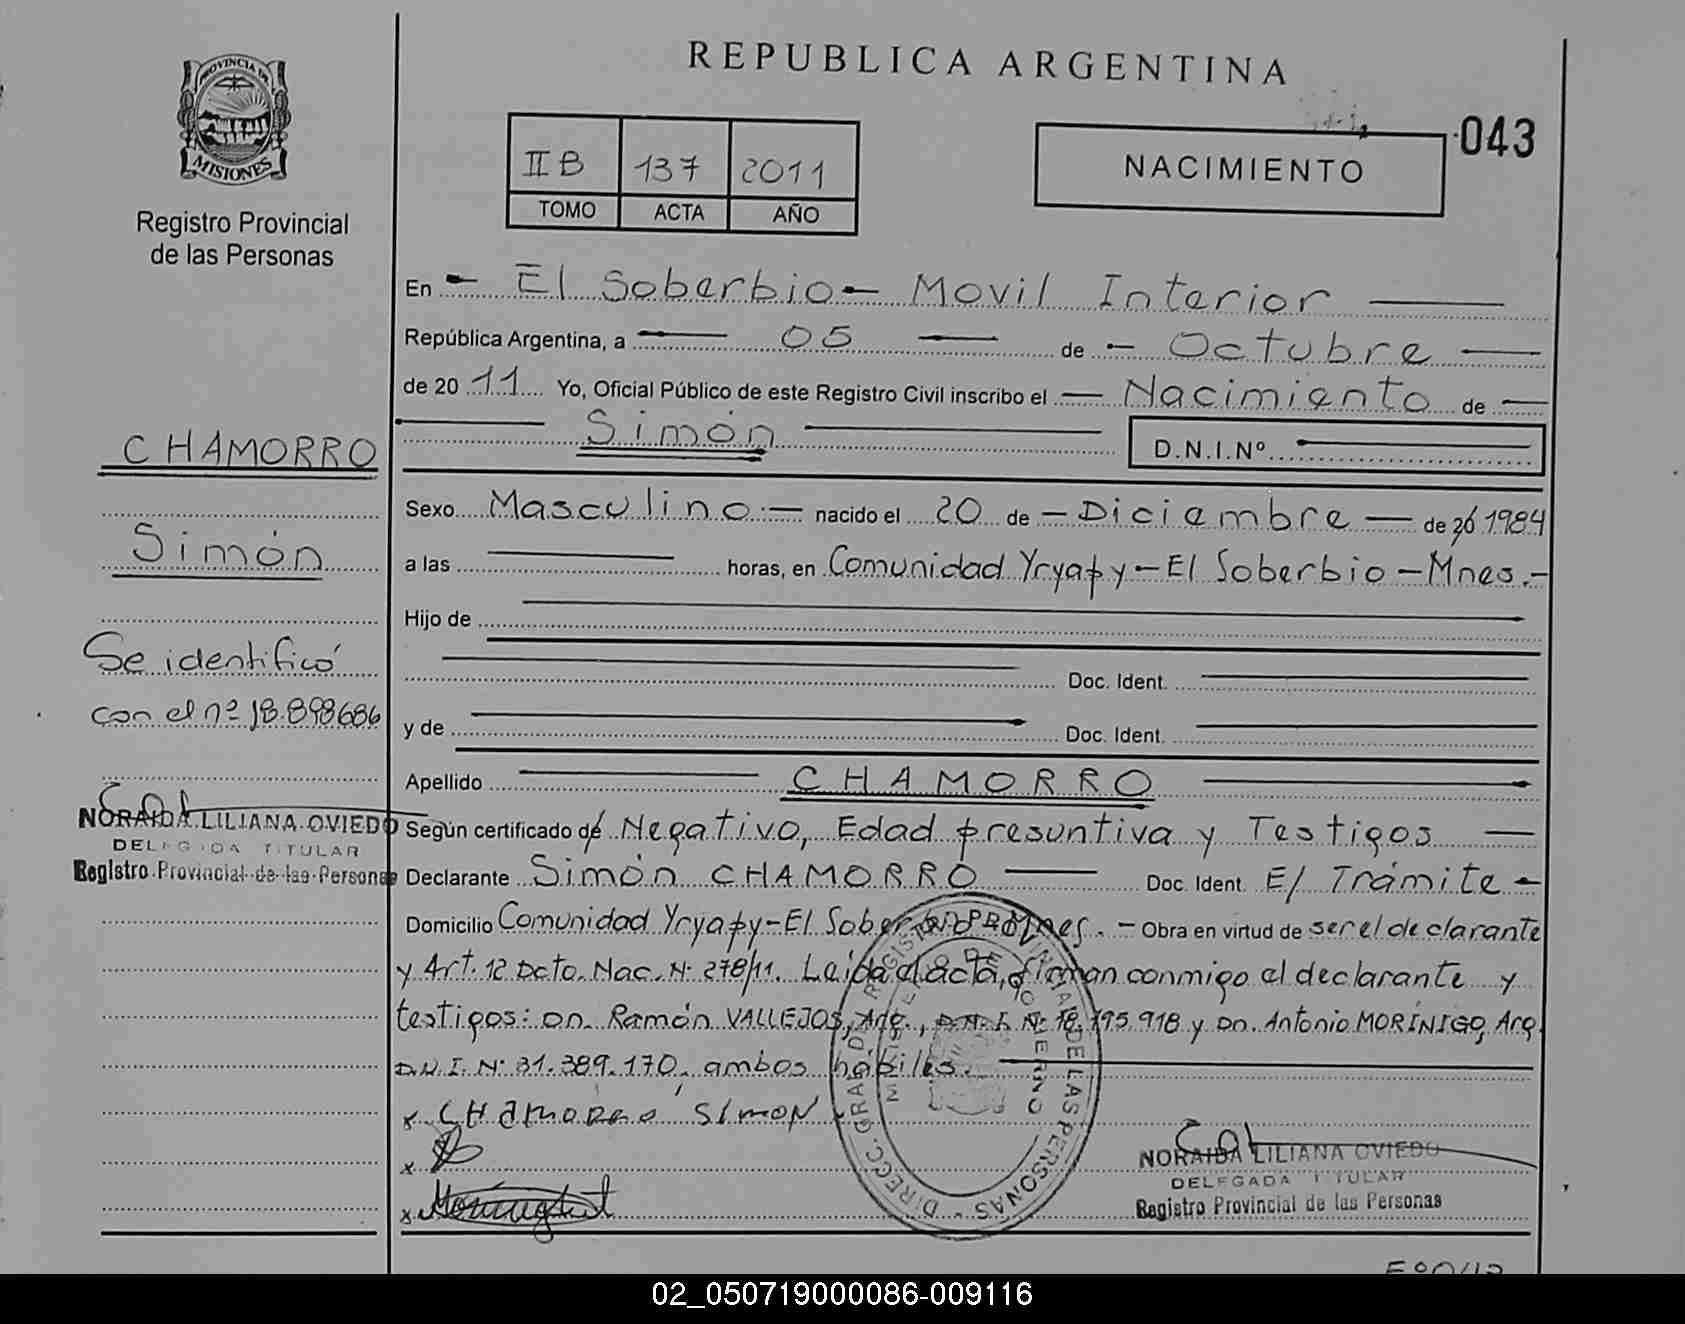 REPUBLICA ARGENTINA
PROVINCIA DE
MISIONES
Registro Provincial
de las Personas
II B 137 2011
TOMO ACTA AÑO
NACIMIENTO
043
En El Soberbio - Movil Interior
República Argentina, a 05 de Octubre
de 20 11 Yo, Oficial Público de este Registro Civil inscribo el Nacimiento de
Simón D.N.I.Nº
CHAMORRO
Simón
Sexo Masculino.- nacido el 20 de Diciembre de 20 1984
a las horas, en Comunidad Yryapy - El Soberbio - Mnes.-
Hijo de
Doc. Ident.
y de Doc. Ident.
Apellido CHAMORRO
Se identificó
con el nº 18.898686
NORAIDA LILIANA OVIEDO
DELEGADA TITULAR
Registro Provincial de las Personas
Según certificado de Negativo, Edad presuntiva y Testigos
Declarante Simón CHAMORRO Doc. Ident. E/ Trámite -
Domicilio Comunidad Yryapy - El Soberbio - Mnes. - Obra en virtud de ser el declarante
y Art. 12 Dcto. Nac. Nº 278/11. Leída el acta, firman conmigo el declarante y
testigos: Dn. Ramón VALLEJOS, Arg., D.N.I. Nº 18.795.918 y Dn. Antonio MORINIGO, Arg.
D.N.I. Nº 31.389.170, ambos hábiles.
x CHamorro Simon
x
x
DIRECC. GRAL. DE REGISTRO PROVINCIAL DE LAS PERSONAS -
MINISTERIO DE GOBIERNO
NORAIDA LILIANA OVIEDO
DELEGADA TITULAR
Registro Provincial de las Personas
02_050719000086-009116